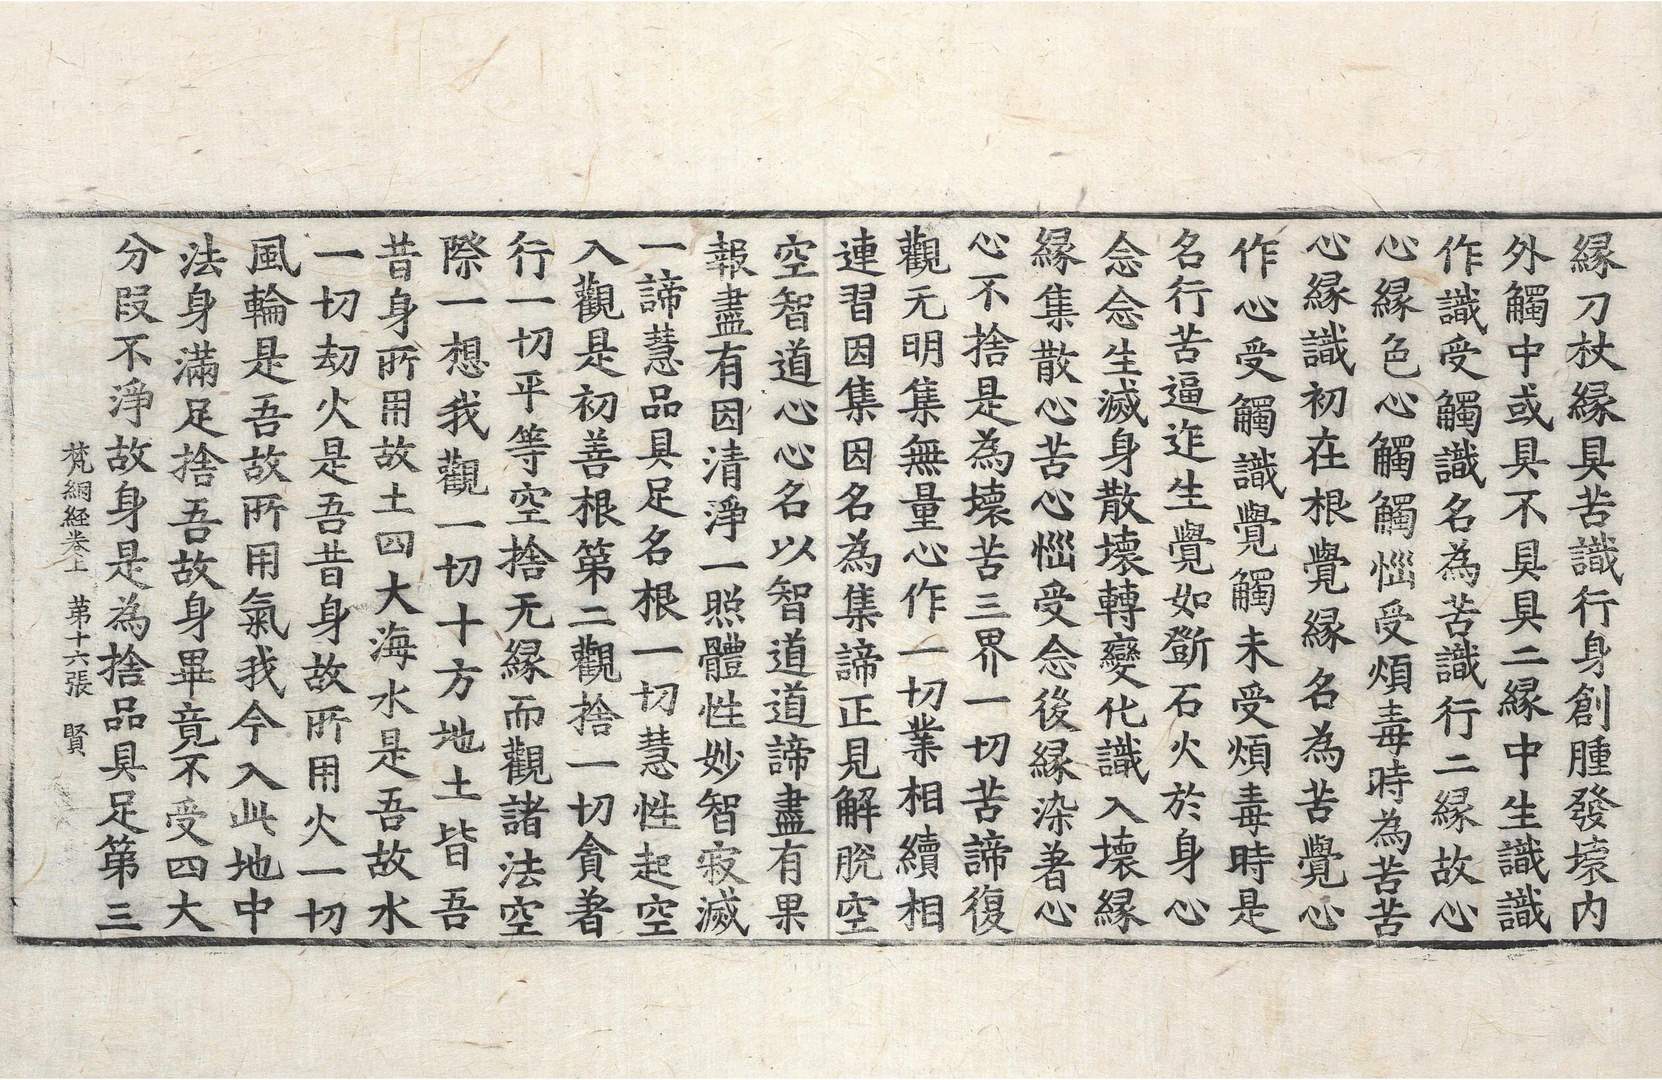 縁刀杖縁具苦識行身創腫發壞內
外觸中或具不具具二縁中生識識
作識受觸識名為苦識行二縁故心
心縁色心觸觸惱受煩毒時為苦苦
心縁識初在根覺縁名為苦覺心
作心受觸識覺觸未受煩毒時是
名行苦逼迮生覺如鄧石火於身心
念念生滅身散壞轉變化識入壞縁
縁集散心苦心惱受念後縁染著心
心不捨是為壞苦三界一切苦諦復
觀无明集無量心作一切業相續相
連習因集因名為集諦正見解脫空
空智道心心名以智道道諦盡有果
報盡有因清淨一照體性妙智寂滅
一諦慧品具足名根一切慧性起空
入觀是初善根第二觀捨一切貪著
行一切平等空捨无縁而觀諸法空
際一想我觀一切十方地土皆吾
昔身所用故土四大海水是吾故水
一切劫火是吾昔身故所用火一切
風輪是吾故所用氣我今入此地中
法身滿足捨吾故身畢竟不受四大
分段不淨故身是為捨品具足第三
梵網経巻上 第十六張 賢